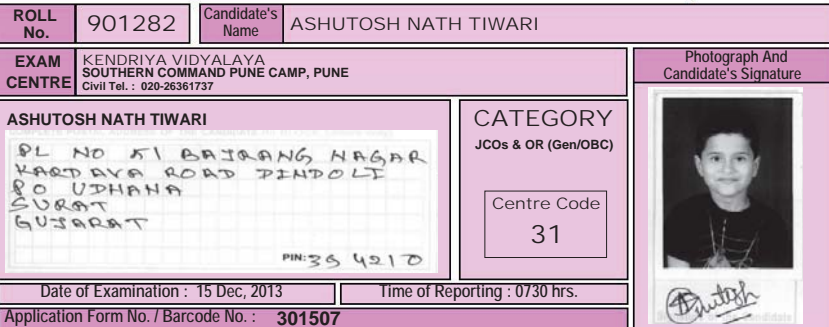 ROLL No. 901282 Candidate's Name ASHUTOSH NATH TIWARI
EXAM CENTRE
KENDRIYA VIDYALAYA
SOUTHERN COMMAND PUNE CAMP, PUNE
Civil Tel. : 020-26361737
Photograph And
Candidate's Signature
ASHUTOSH NATH TIWARI
PL NO 51 BAJRANG NAGAR
KARDAVA ROAD DINDOLI
PO UDHANA
SURAT
GUJARAT
PIN: 394210
CATEGORY
JCOs & OR (Gen/OBC)
Centre Code
31
Date of Examination : 15 Dec, 2013
Time of Reporting : 0730 hrs.
Application Form No. / Barcode No. : 301507